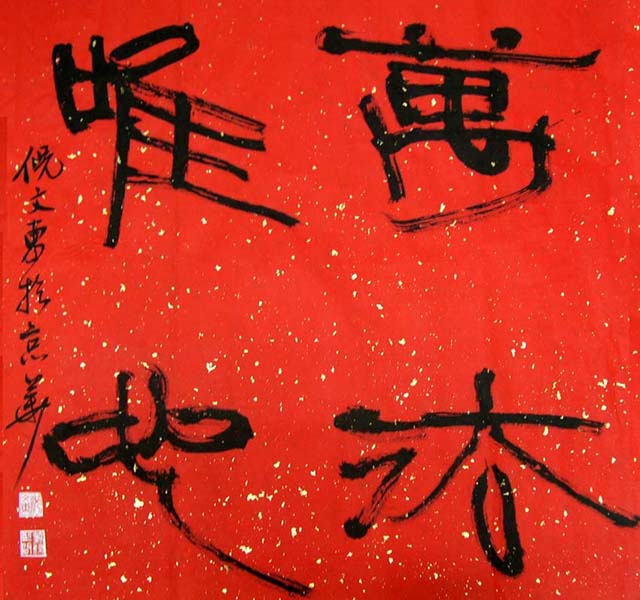 萬法
唯心
倪文東於京華